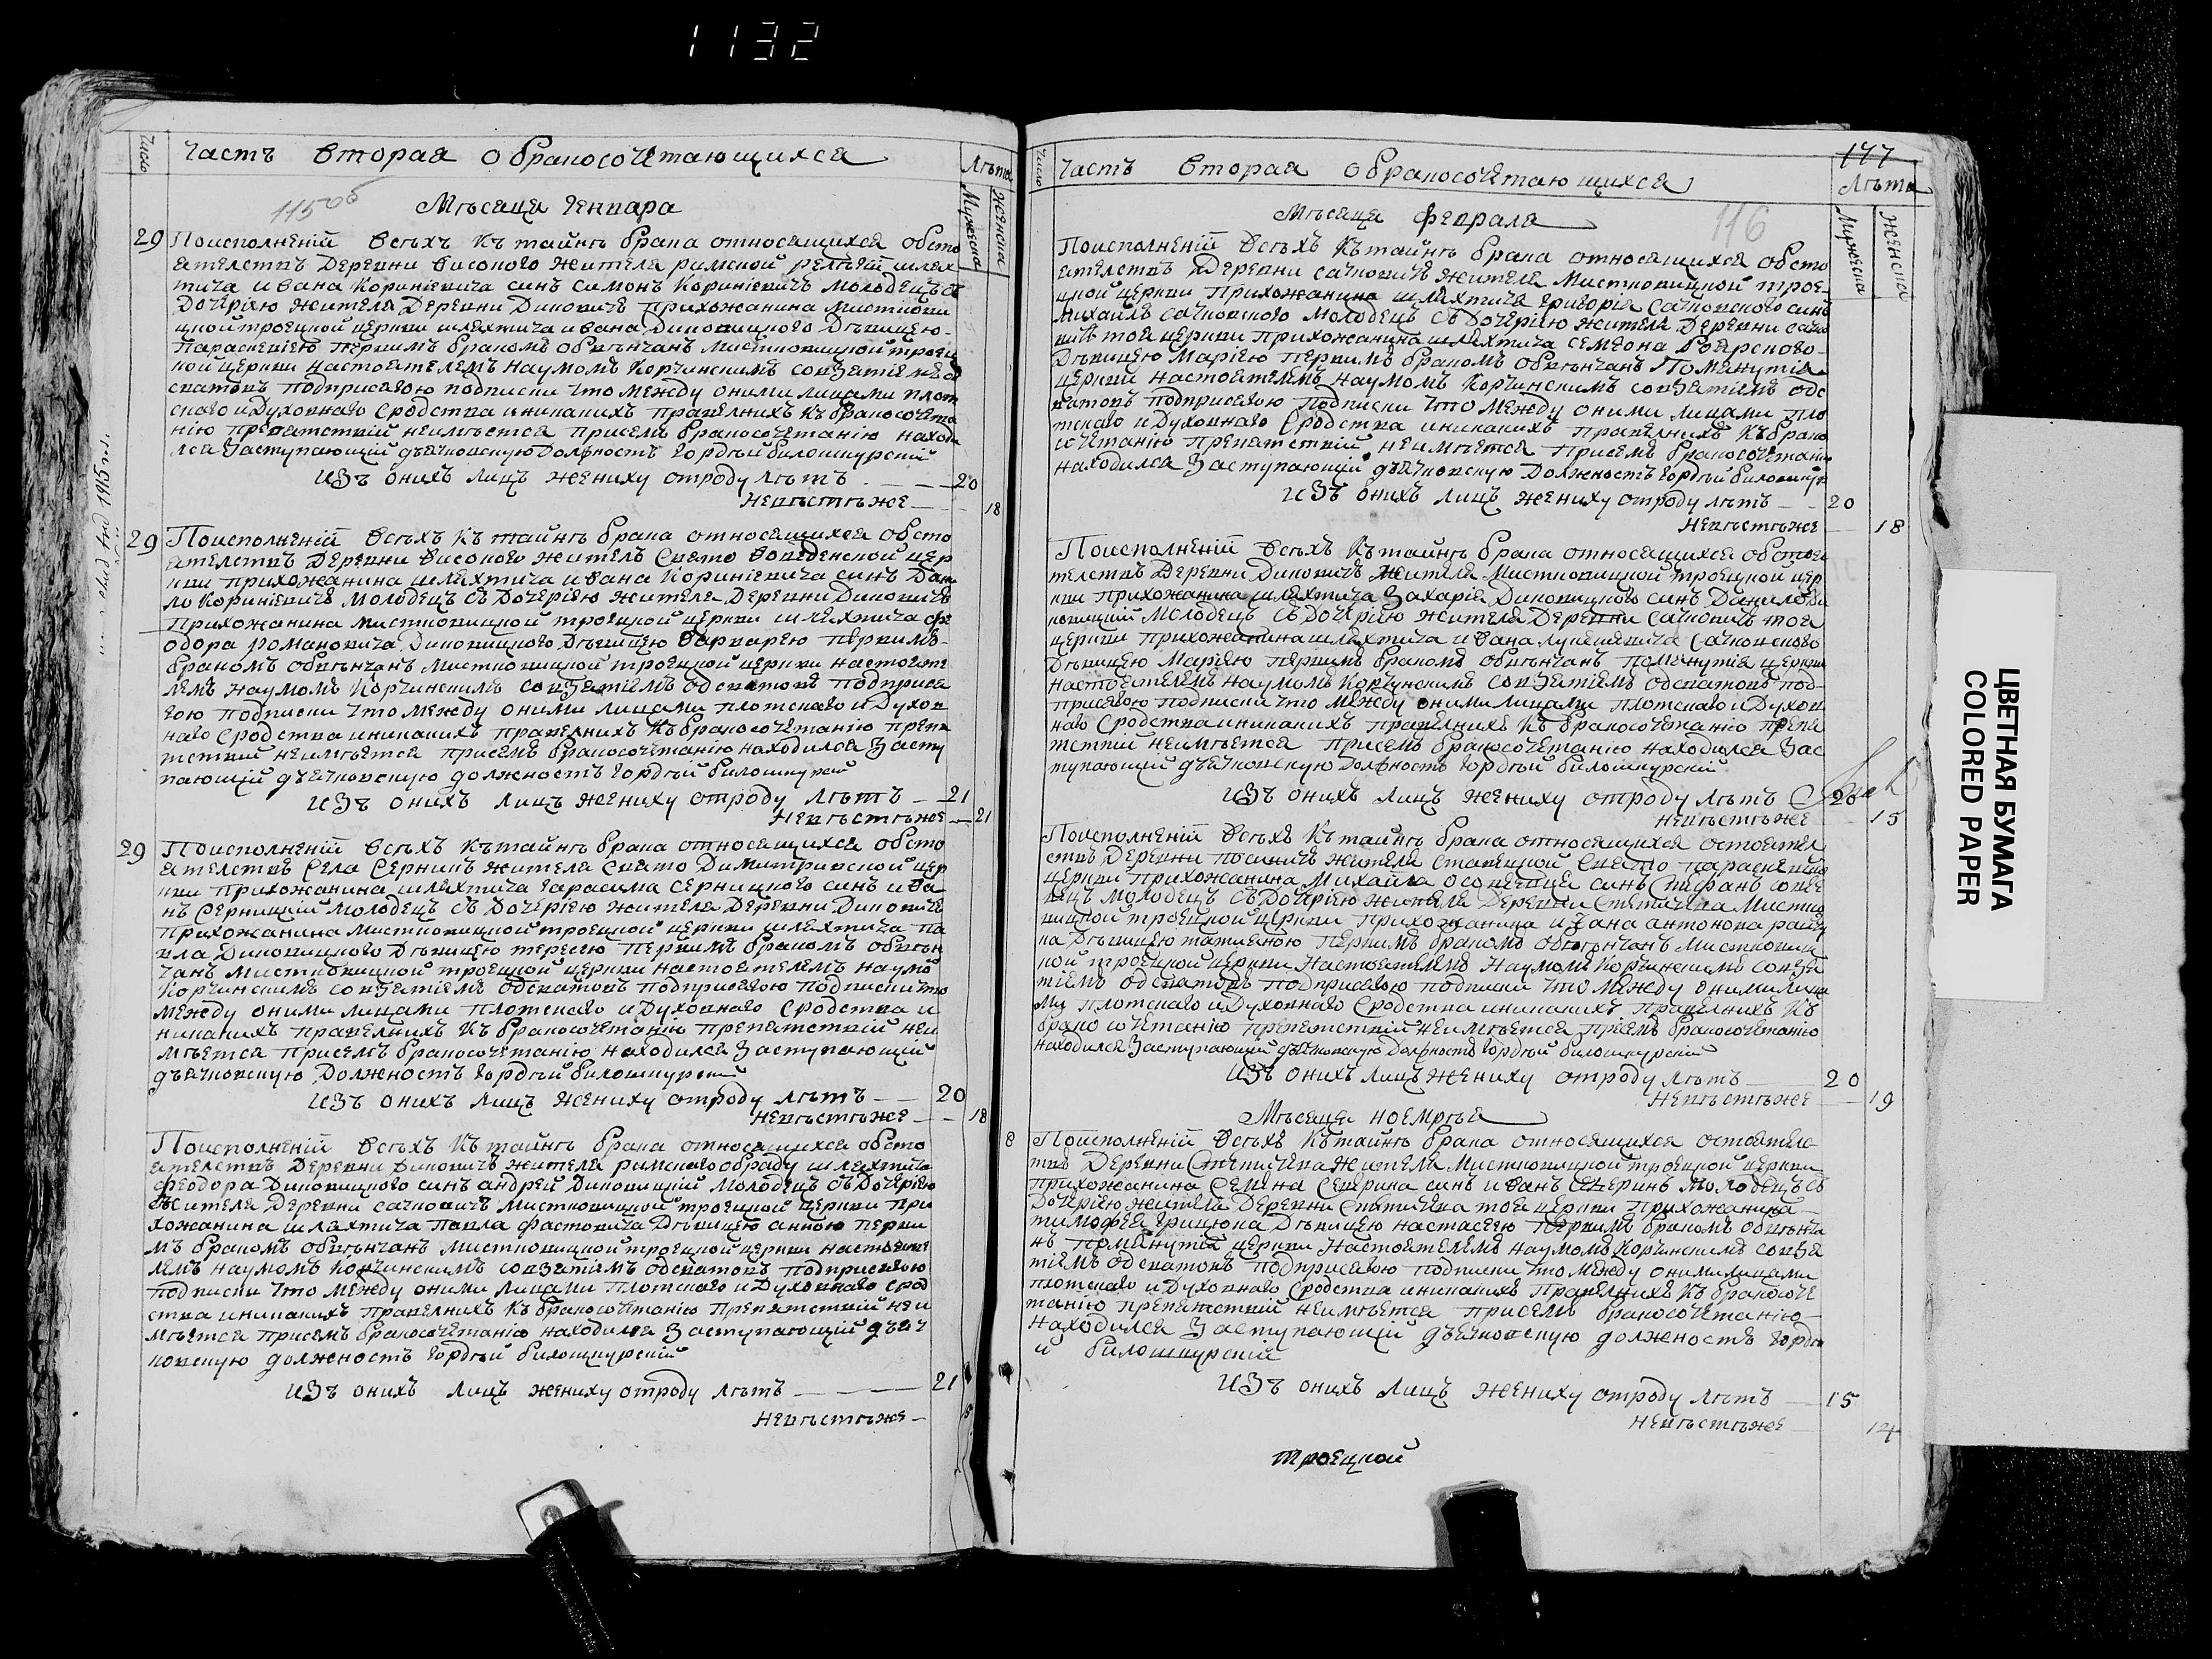 1132
Число
Часть вторая о бракосочетающихся
Лѣта
Мужеска
Женска
115 об
Мѣсяца Генвара
29 Поисполненій всѣхъ къ тайнѣ брака относящихся обсто
ятелствъ Деревни високого жителя римской религій шлях
тича ивана Кориніевича синъ симонъ Кориніевичъ молодецъ съ
Дочерiею жителя Деревни Диковичъ прихожанина мисткови
цкой троецкой церкви шляхтича ивана Диковицкого Дѣвицею
Параскевіею первимъ бракомъ обвѣнчанъ мистковицкой троец
кой церкви настоятелемъ наумомъ Корчинскимъ совзятіемъ од
сватовъ подприсягою подписки что между оними лицами плот
скаго и Духовнаго сродства иникакихъ правелнихъ къ бракосочета
нію препятствій неимѣется присемъ бракосочетанію находи
лся заступающій дьячковскую Должность Гордѣй билошкурскій
изъ онихъ лицъ жениху отроду лѣтъ 20
невѣстѣже 18
29 Поисполненій всѣхъ къ тайнѣ брака относящихся обсто
ятелствъ Деревни високого жителъ свято воведенской цер
кви прихожанина шляхтича ивана Кориніевича синъ Дани
ло Кориніевичъ молодецъ съ Дочеріею жителя Деревни Диковичъ
прихожанина мистковицкой троецкой церкви шляхтича фе
одора романовича Диковицкого Дѣвицею варварею первимъ
бракомъ обвѣнчанъ мистковицкой троецкой церкви настояте
лемъ наумомъ Корчинскимъ совзятіемъ од сватовъ подприся
гою подписки что между оними лицами плотскаго и Духов
наго сродства иникакихъ правелнихъ къ бракосочетанію препя
тствій неимѣется присемъ бракосочетанію находился засту
пающій дьячковскую должность Гордѣй билошкурскій
изъ онихъ лицъ жениху отроду лѣтъ 21
невѣстѣже 21
29 Поисполненій всѣхъ къ тайнѣ брака относящихся обсто
ятелствъ села серникъ жителя свято Димитриевской цер
кви прихожанина шляхтича Гарасима серницкого синъ ива
нъ серницкій молодецъ съ Дочеріею жителя Деревни Диковичъ
прихожанина мистковицкой троецкой церкви шляхтича па
вла Диковицкого Дѣвицею тересею первимъ бракомъ обвѣн
чанъ мистковицкой троецкой церкви настоятелемъ наумо
Корчинскимъ совзятіемъ одсватовъ подприсягою подписки что
между оними лицами плотскаго и Духовнаго сродства и
никакихъ правелнихъ къ бракосочетанію препятствій неи
мѣется присемъ бракосочетанію находился заступающій
дьячковскую Должность Гордѣй билошкурскій
изъ онихъ лицъ жениху отроду лѣтъ 20
невѣстѣже 18
Поисполненій всѣхъ къ тайнѣ брака относящихся обсто
ятелствъ Деревни диковичъ жителя римского обряду шляхтича
феодора Диковицкого синъ андрей Диковицкій молодецъ съ Дочеріею
жителя Деревни сачковичъ мистковицкой троецкой церкви при
хожанина шляхтича павла фастовича Дѣвицею анною перви
мъ бракомъ обвѣнчанъ мистковицкой троецкой церкви настояте
лемъ наумомъ Корчинскимъ совзятіемъ одсватовъ подприсягою
подписки что между оними лицами плотскаго и Духовнаго срод
ства иникакихъ правелнихъ къ бракосочетанію препятствій неи
мѣется присемъ бракосочетанію находился заступающій дьяч
ковскую должность Гордѣй билошкурскій
изъ онихъ лицъ жениху отроду лѣтъ 21
невѣстѣже
Число
Часть вторая о бракосочетающихся
177
Лѣта
Мужеска
Женска
116
Мѣсяца февраля
Поисполненій всѣхъ къ тайнѣ брака относящихся обсто
ятелствъ Деревни сачковичъ жителя мистковицкой трое
цкой церкви прихожанина шляхтича григорія сачковского синъ
михаилъ сачковского молодецъ съ дочеріею жителя Деревни сачко
вичъ той церкви прихожанина шляхтича семеона боярского
Дѣвицею маріею первимъ бракомъ обвѣнчанъ помянутія
церкви настоятелемъ наумомъ Корчинскимъ совзятіемъ одс
ватовъ подприсягою подписки что между оними лицами пло
тскаго и Духовнаго сродства иникакихъ правелнихъ къ брако
сочетанію препятствій неимѣется присемъ бракосочетанію
находился заступающій дьячковскую Должность Гордѣй билошкур
изъ онихъ лицъ жениху отроду лѣтъ 20
невѣстѣже 18
Поисполненій всѣхъ къ тайнѣ брака относящихся обстоя
телствъ Деревни Диковичъ жителя мистковицкой троецкой цер
кви прихожанина шляхтича захарія Диковицкого синъ Данило Ди
ковицкій молодецъ съ Дочеріею жителя Деревни сачковичъ тоя
церкви прихожанина шляхтича ивана лукашевича сачковского
Дѣвицею маріею первимъ бракомъ обвѣнчанъ помянутія церкви
настоятелемъ наумомъ Корчинскимъ совзятіемъ одсватовъ под
присягою подписки что между оними лицами плотскаго и Духов
наго сродства иникакихъ правелнихъ къ бракосочетанію препя
тствій неимѣется присемъ бракосочетанію находился зас
тупающій дьячковскую Должность Гордѣй билошкурскій
изъ онихъ лицъ жениху отроду лѣтъ 20
невѣстѣже 15
Поисполненій всѣхъ къ тайнѣ брака относящихся остоятел
ствъ Деревни посеничъ жителя ставецкой свято параскевіев
церкви прихожанина михайла осовеця синъ стефанъ сове
ецъ молодецъ съ Дочеріею жителя Деревни Ститичева мистко
вицкой троецкой церкви прихожанина ивана антонова
на Дѣвицею татияною первимъ бракомъ обвѣнчанъ мистковиц
кой троецкой церкви настоятелемъ наумомъ Корчинскимъ совзя
тіемъ одсватовъ подприсягою подписки что между оними лица
ми плотскаго и Духовнаго сродства иникакихъ правелнихъ къ
брако сочетанію препятствій неимѣется присемъ бракосочетанію
находился заступающій дьячковскую Должность Гордѣй билошкурскій
изъ онихъ лицъ жениху отроду лѣтъ 20
невѣстѣже 19
Мѣсяца ноемрѣя
8 Поисполненій всѣхъ къ тайнѣ брака относящихся остоятелс
твъ Деревни Ститичева жителя мистковицкой троецкой церкви
прихожанина семена северина синъ иванъ северинъ молодецъ съ
дочеріею жителя Деревни Ститичева тоя церкви прихожанина
тимофея грицюка Дѣвицею настасею первимъ бракомъ обвѣнча
нъ помянутія церкви настоятелемъ наумомъ Корчинскимъ совзя
тіемъ одсватовъ подприсягою подписки что между оними лицами
плотскаго и Духовнаго сродства иникакихъ правелнихъ къ бракосоче
танію препятствій неимѣется присемъ бракосочетанію
находился заступающій дьячковскую должность Гордѣ
й билошкурскій
изъ онихъ лицъ жениху отроду лѣтъ 15
невѣстѣже 14
троецкой
ЦВЕТНАЯ БУМАГА
COLORED PAPER